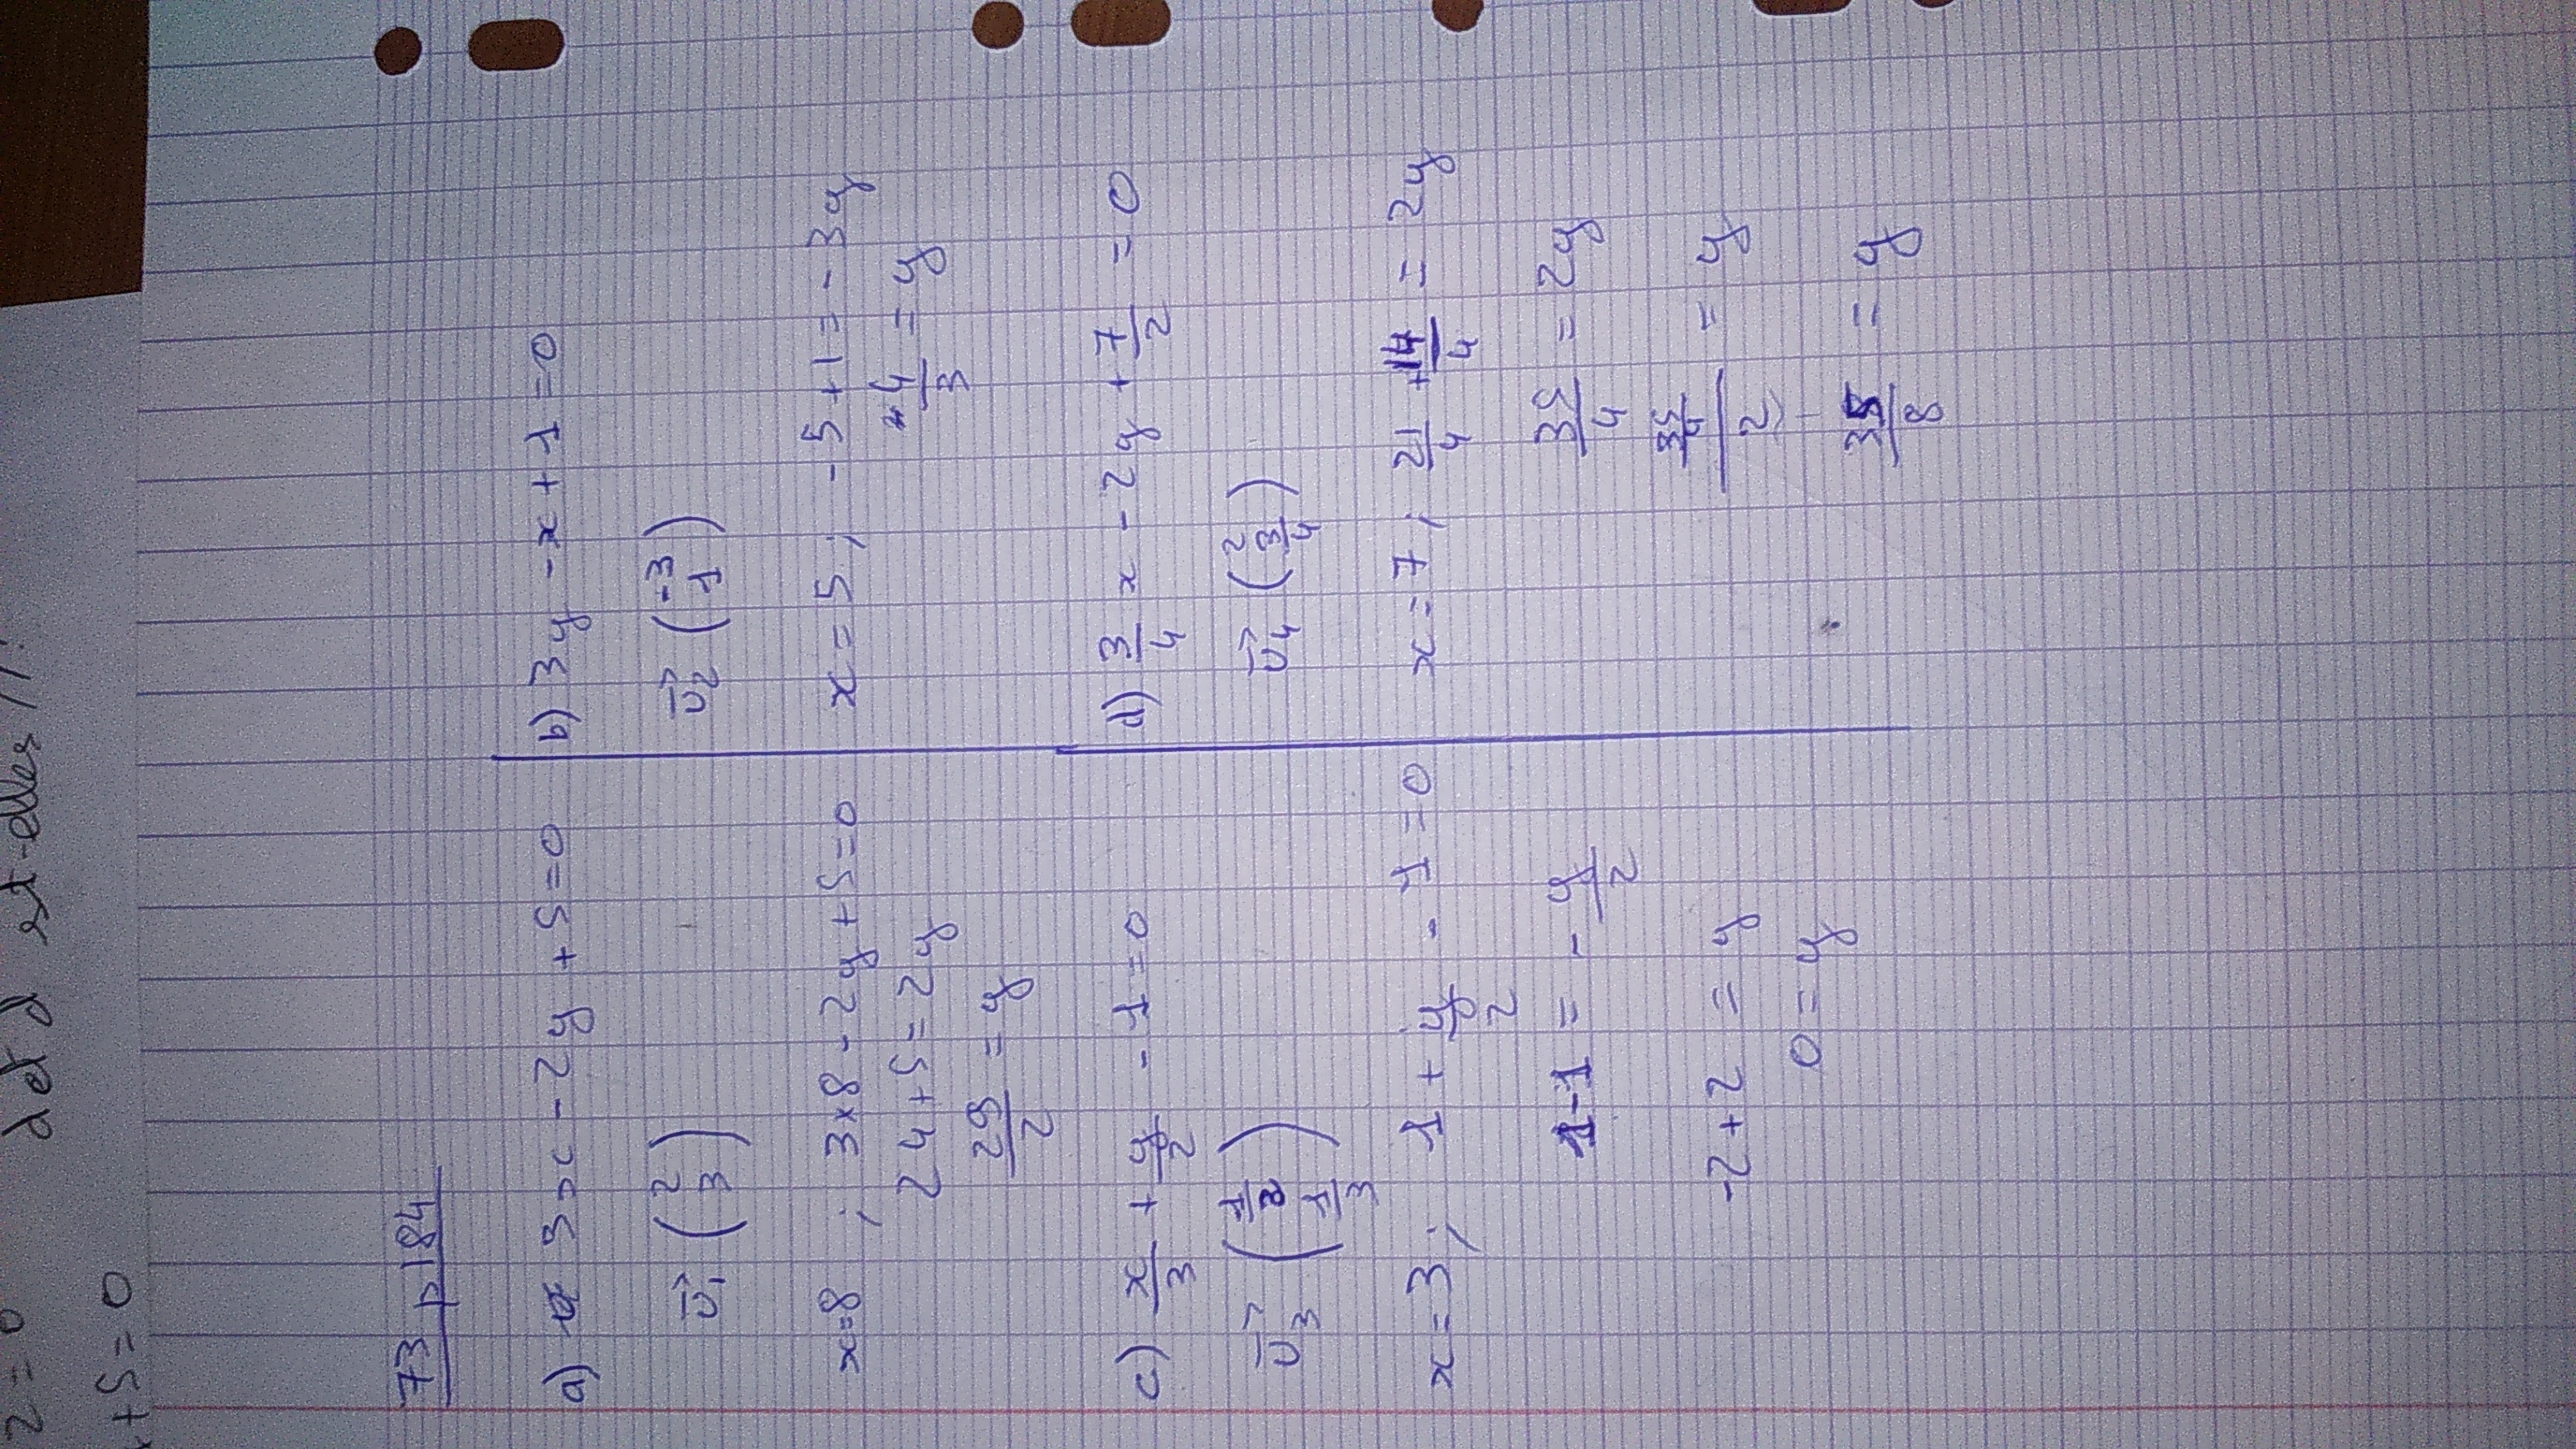 2 = 0 d et d est-elles //?
+5 = 0
73 p 184
a) 3x - 2y + 5 = 0
u₁→ (2 3)
x=8 ; 3x8 - 2y + 5 = 0
24 + 5 = 2y
29/2 = y
b) 3y - x + 1 = 0
u₂→ (-3 1)
x = 5 ; -5 + 1 = -3y
4/3 = y
c) x/3 + y/2 - 1 = 0
u₃→ (1/2 1/3)
x = 3 ; 1 + y/2 - 1 = 0
1 - 1 = - y/2
-2 + 2 = y
0 = y
d) 3/4 x - 2y + 7/2 = 0
u₄→ (2 3/4)
x = 7 ; 21/4 + 14/4 = 2y
35/4 = 2y
35/4/2 = y
35/8 = y